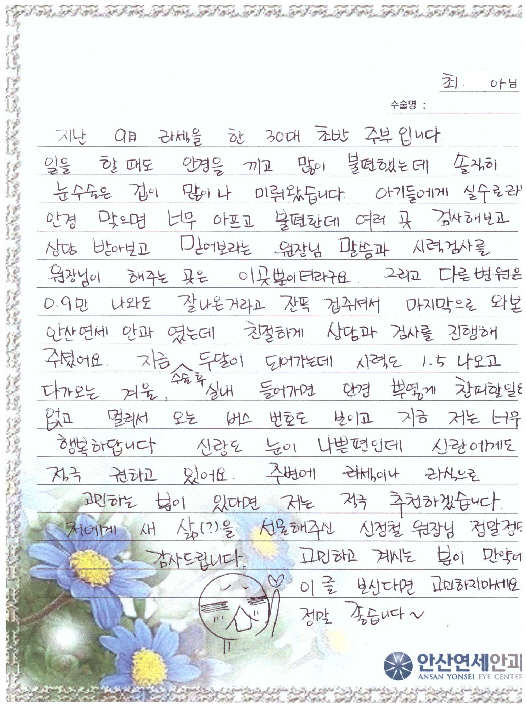 최. 아님
수술명 :
지난 9月 라섹을 한 30대 초반 주부입니다.
일을 할 때도 안경을 끼고 많이 불편했는데 솔직히
눈수술은 겁이 많이 나 미뤄왔습니다. 아기들에게 실수로라
안경 맞으면 너무 아프고 불편한데 여러 곳 검사해보고
상담 받아보고 믿어보라는 원장님 말씀과 시력검사를
원장님이 해주는 곳은 이곳뿐이더라구요. 그리고 다른병원은
0.9만 나와도 잘나온거라고 잔뜩 겁주셔서 마지막으로 와본
안산연세 안과 였는데 친절하게 상담과 검사를 진행해
주셨어요. 지금 수술후 두달이 되어가는데 시력도 1.5 나오고
다가오는 겨울, 실내 들어가면 안경 뿌옇게 창피할일도
없고 멀리서 오는 버스 번호도 보이고 지금 저는 너무
행복하답니다 신랑도 눈이 나쁜편인데 신랑에게도
적극 권하고 있어요. 주변에 라섹이나 라식으로
고민하는 분이 있다면 저는 적극 추천하겠습니다.
저에게 새 삶(?)을 선물해주신 신정철 원장님 정말정말
감사드립니다. 고민하고 계시는 분이 만약에
이 글 보신다면 고민하지마세요
정말 좋습니다~
안산연세안과
ANSAN YONSEI EYE CENTER